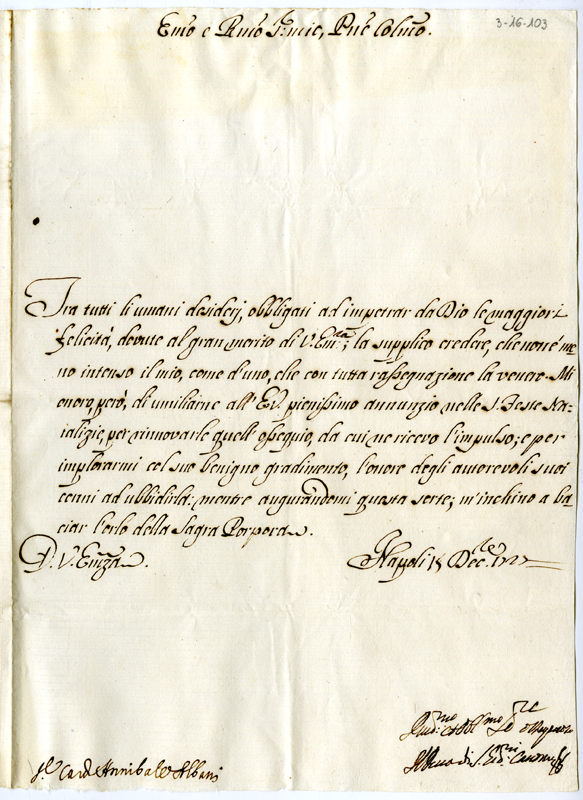 3-16-103
Emo e Rmo Sigre mio, Prne Colmo.
Fra tutti li umani desiderj, obbligati ad impetrar da Dio le maggiori
felicità, dovute al gran merito di V. Emza; la supplico credere, che non è me=
no intenso il mio, come d'uno, che con tutta rassegnazione la venera. Mi
onoro, però, di umiliarne all' E.V. pienissimo annunzio nelle S. Feste Na=
talizie, per rinnovarle quell' ossequio, da cui ne ricevo l'impulso; e per
implorarmi col suo benigno gradimento, l'onore degli autorevoli suoi
cenni ad ubbidirla: mentre augurandomi questa sorte; m'inchino a ba=
ciar l'orlo della Sagra Porpora.
D. V. Emza.
Napoli Dec.re
Sr. Card. Annibale Albani